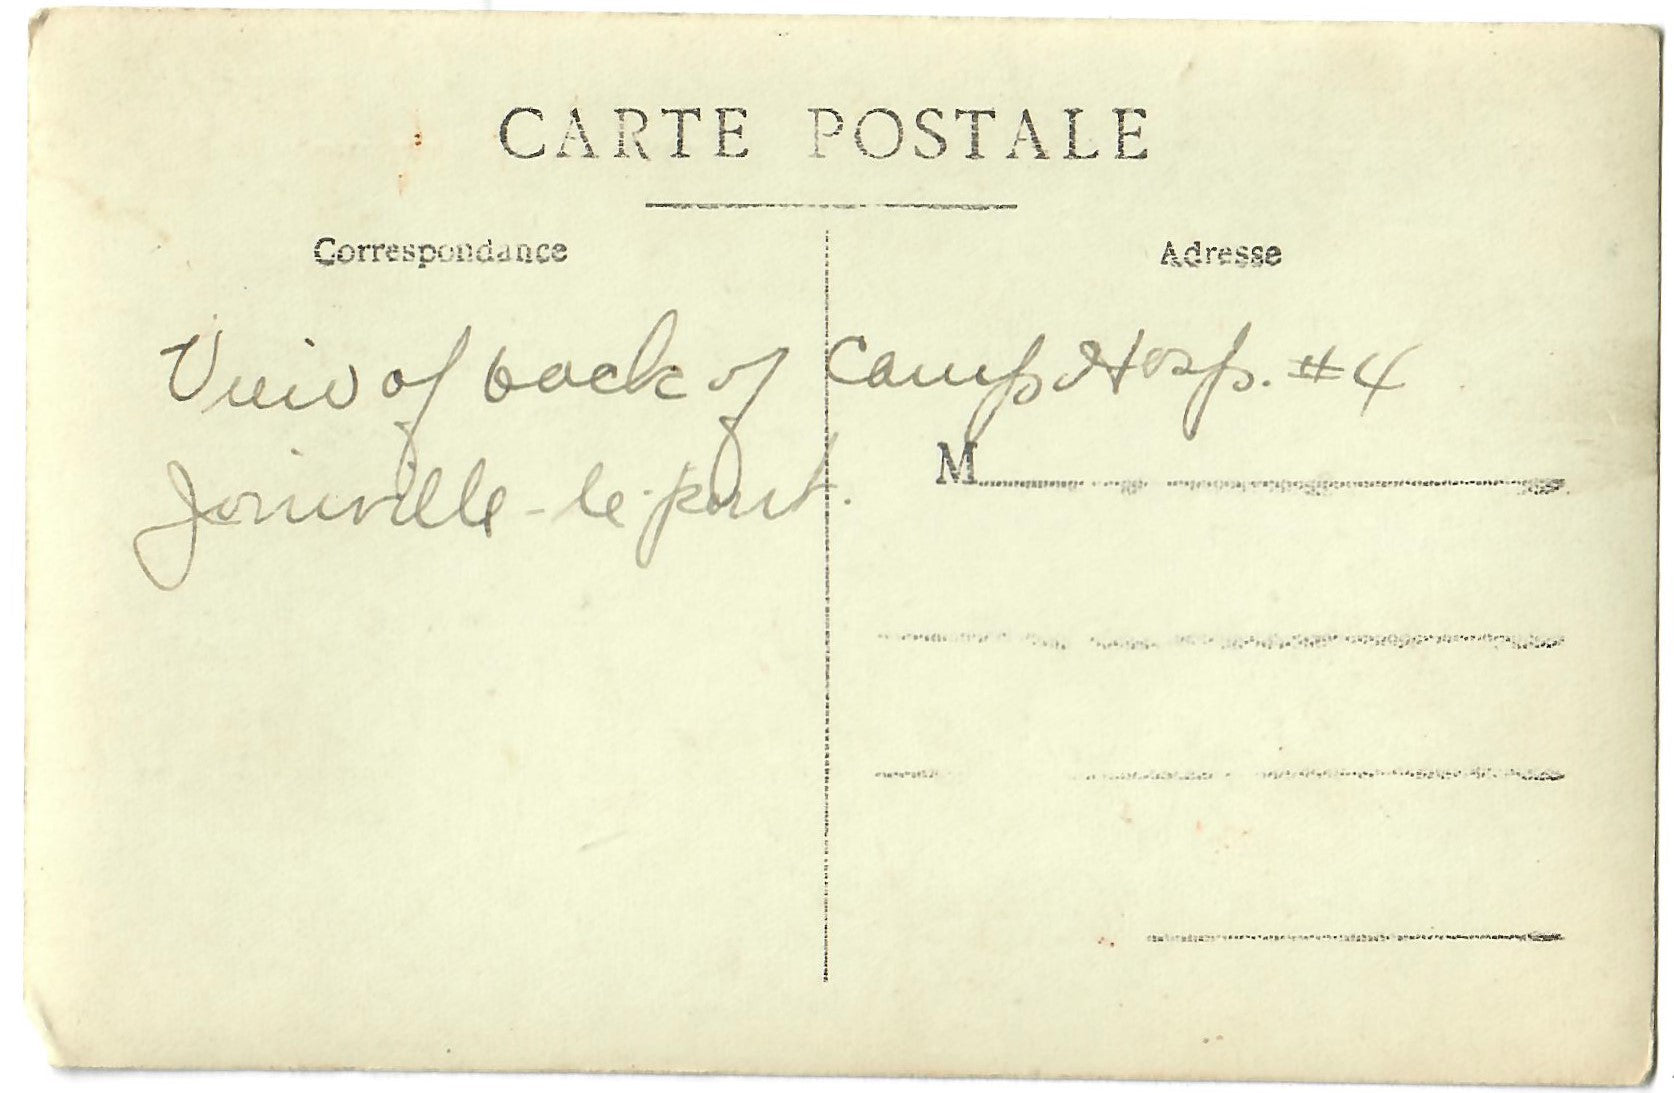 CARTE POSTALE
Correspondance
Adresse
View of back of Camp Hosp. #4
Joinville-le-pont.
M